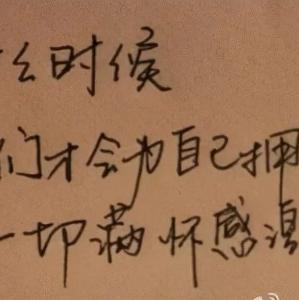 么时候
们才会为自己拥
一切满怀感